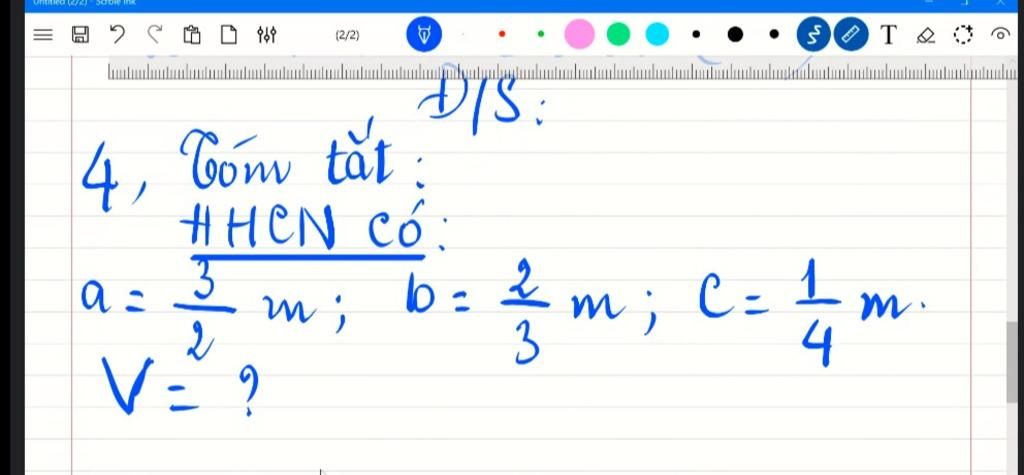 Untitled (2/2) - Scrble Ink
(2/2)
T
Đ/S:
4, Tóm tắt:
HHCN có:
a = 3/2 m; b = 2/3 m; c = 1/4 m.
V = ?